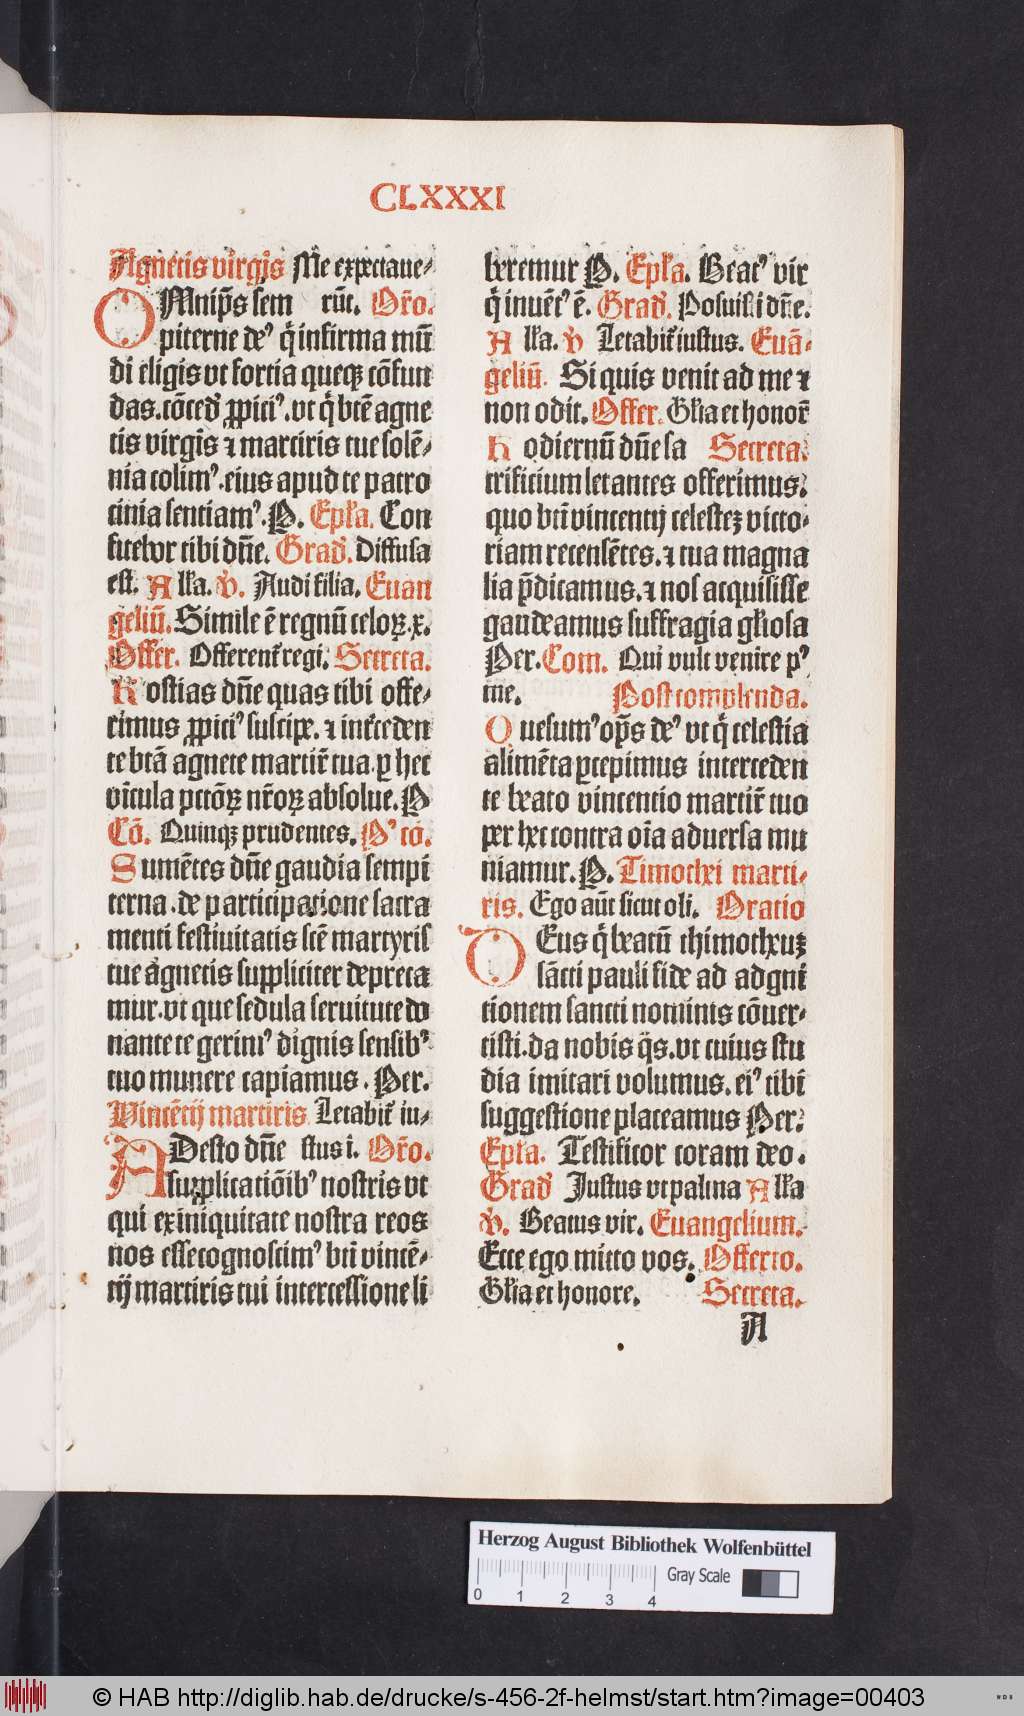 CLXXXI
Agnetis virgĩs Me expectaue⸗
OMnip̃s sem rũt. Or̃o.
piterne deꝰ q̃ infirma mũ
di eligis vt fortia queqꝫ cõfun
das. cõcedꝭ ꝓpiciꝰ. vt q̃ btẽ agne
tis virgĩs ⁊ martiris tue solẽ⸗
nia colimꝰ. eius apud te patro
cinia sentiamꝰ. P. Ep̃la. Con
fitebor tibi dñe. Grad̃. Diffusa
est. Alla. v̾. Audi filia. Euan
geliũ. Simile ẽ regnũ celoꝝ. x.
Offer. Offerent̃ regi. Secreta.
Hostias dñe quas tibi offe⸗
rimus ꝓpiciꝰ suscipe. ⁊ int̃ceden
te btã agnete martir̃ tua. ꝑ hec
vĩcula pctõꝝ nr̃oꝝ absolue. P
Cõ. Quinqꝫ prudentes. Pꝰ cõ.
Sumẽtes dñe gaudia sempi
terna. de participatione sacra
menti festiuitatis scẽ martyris
tue agnetis suppliciter depreca
mur. vt que sedula seruitute do
nante te gerimꝰ dignis sensibꝰ
tuo munere capiamus. Per.
Vincẽcij martiris Letabit̃ iu⸗
ADesto dñe stus i. Or̃o.
supplicatiõibꝰ nostris vt
qui ex iniquitate nostra reos
nos esse cognoscimꝰ bti vincẽ⸗
cij martiris tui intercessione li
beremur P. Ep̃la. Beatꝰ vir
q̃ inuẽtꝰ ẽ. Grad̃. Posuisti dñe.
Alla. v̾ Letabit̃ iustus. Euã⸗
geliũ. Si quis venit ad me ⁊
non odit. Offer. Gl̃ia et honor̃
Hodiernũ dñe sa Secreta.
crificium letantes offerimus.
quo bti vincentij celestẽ victo⸗
riam recensẽtes. ⁊ tua magna
lia p̃dicamus. ⁊ nos acquisisse
gaudeamus suffragia gl̃iosa
Per. Com. Qui vult venire pꝰ
me. Postcomplenda.
Quesumꝰ op̃s deꝰ vt q̃ celestia
alimẽta ꝑcepimus interceden
te beato vincencio martir̃ tuo
per hec contra oĩa aduersa mu
niamur. P. Timothei marti⸗
ris. Ego aũt sicut oli. Oratio
DEus q̃ beatũ thimotheuꝫ
sãcti pauli fide ad adgni
tionem sancti nominis cõuer⸗
tisti. da nobis q̃s. vt cuius stu
dia imitari volumus. eiꝰ tibi
suggestione placeamus Per.
Ep̃la. Testificor coram deo.
Grad̃ Justus vt palma Alla
v̾. Beatus vir. Euangelium.
Ecce ego mitto vos. Offerto.
Gl̃ia et honore. Secreta.
A
Herzog August Bibliothek Wolfenbüttel
Gray Scale
0 1 2 3 4
© HAB http://diglib.hab.de/drucke/s-456-2f-helmst/start.htm?image=00403
WDB